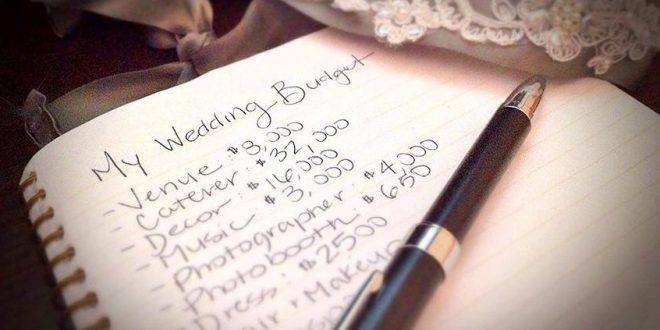 My Wedding Budget
- Venue: $8,000
- Caterer: $32,000
- Decor: $16,000
- Music: $3,000
- Photographer: $4,000
- Photobooth: $650
- Dress: $2500
Hair + Makeup